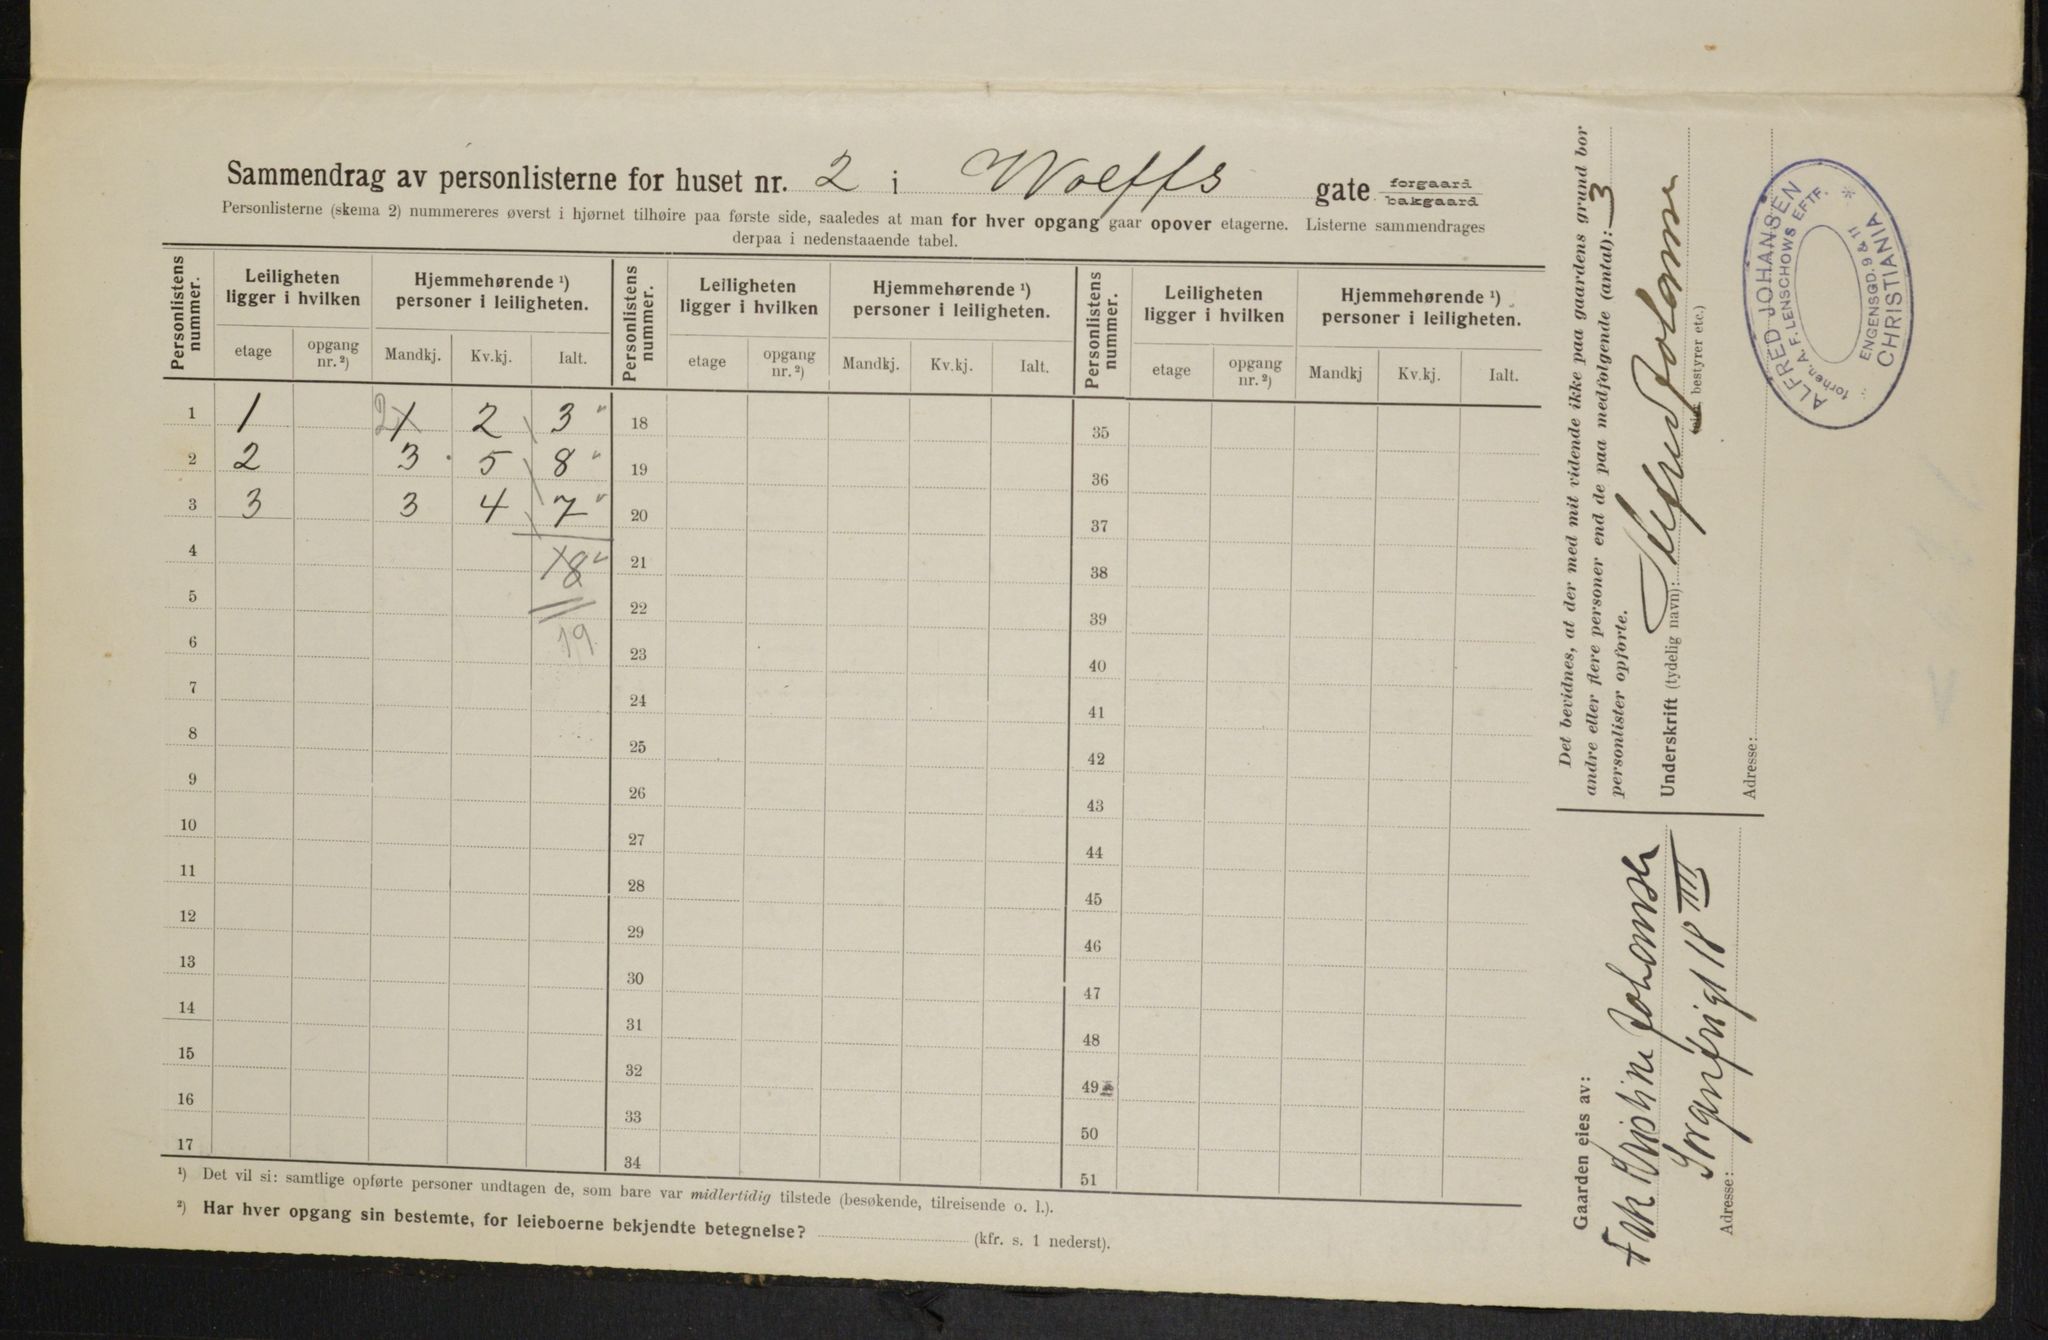 Sammendrag av personlisterne for huset nr. 2 i Wolffs gate forgaard bakgaard
Personlisterne (skema 2) nummereres øverst i hjørnet tilhøire paa første side, saaledes at man for hver opgang gaar opover etagerne. Listerne sammendrages
derpaa i nedenstaaende tabel.
Personlistens nummer. Leiligheten ligger i hvilken Hjemmehørende ¹) personer i leiligheten. Personlistens nummer. Leiligheten ligger i hvilken Hjemmehørende ¹) personer i leiligheten. Personlistens nummer. Leiligheten ligger i hvilken Hjemmehørende ¹) personer i leiligheten.
etage opgang nr. ²) Mandkj. Kv.kj. Ialt. etage opgang nr. ²) Mandkj. Kv.kj. Ialt. etage opgang nr. ²) Mandkj Kv.kj. Ialt.
1 1 2 1 2 3 " 18 35
2 2 3 5 8 " 19 36
3 3 3 4 7 " 20 37
4 18 21 38
5 22 39
6 19. 23 40
7 24 41
8 25 42
9 26 43
10 27 44
11 28 45
12 29 46
13 30 47
14 31 48
15 32 49
16 33 50
17 34 51
¹) Det vil si: samtlige opførte personer undtagen de, som bare var midlertidig tilstede (besøkende, tilreisende o. l.).
²) Har hver opgang sin bestemte, for leieboerne bekjendte betegnelse? (kfr. s. 1 nederst).
Det bevidnes, at der med mit vidende ikke paa gaardens grund bor
andre eller flere personer end de paa medfølgende (antal): 3
personlister opførte.
Underskrift (tydelig navn): Alfred Johansen
(eier, bestyrer etc.)
Adresse:
ALFRED JOHANSEN
forhen. A. F. LENSCHOWS EFTF.
ENGENSGD. 9 & 11
CHRISTIANIA
Gaarden eies av:
Frk Kristine Johansen
Sorgenfrigt 18 III
Adresse: